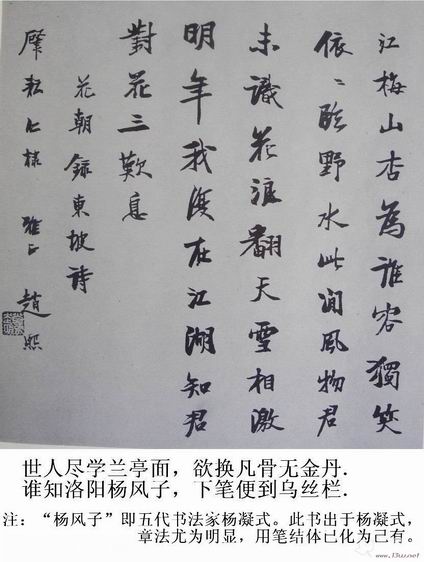 江梅山杏為誰容獨笑
依〻臨野水此间風物君
未識花浪翻天雪相激
明年我復在江湖知君
對花三歎息
花朝錄東坡詩
耘仁棣 雅正 趙熙
世人尽学兰亭而，欲换凡骨无金丹.
谁知洛阳杨风子，下笔便到乌丝栏.
注：“杨风子”即五代书法家杨凝式。此书出于杨凝式，
章法尤为明显，用笔结体已化为己有。